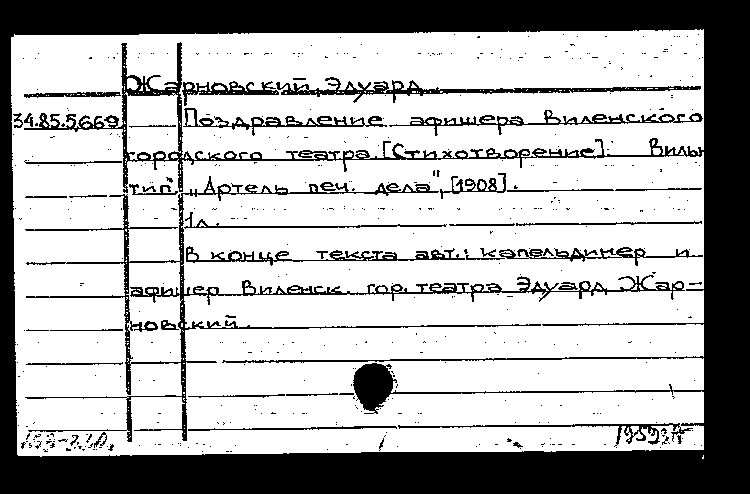 Жарновский, Эдуард
34.85.5.669 Поздравление афишера Виленского
городского театра. [Стихотворение]. Вильн
тип. „Артель печ. дела", [1908].
1л.
В конце текста авт.: капельдинер и
афишер Виленск. гор. театра Эдуард Жар-
новский.